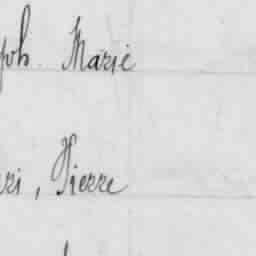 ph. Marie
ri, Pierre